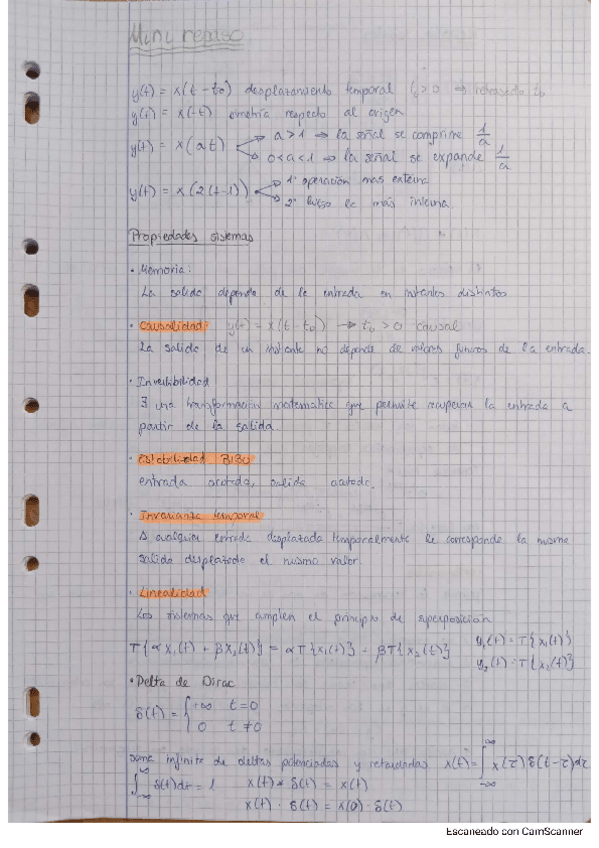 Mini repaso
y(t) = x(t - t₀) desplazamiento temporal t₀>0 ⇒ retrasado t₀
y(t) = x(-t) simetría respecto al origen
a>1 → la señal se comprime 1/a
y(t) = x(at)
0<a<1 → la señal se expande 1/a
1º operación más externa
y(t) = x(2(t-1))
2º luego la más interna.
Propiedades sistemas
· Memoria:
La salida depende de la entrada en instantes distintos
· Causalidad y(t) = x(t - t₀) → t₀ > 0 causal
La salida de un instante no depende de valores futuros de la entrada.
· Invertibilidad
∃ una transformación matemática que permite recuperar la entrada a
partir de la salida.
· Estabilidad BIBO
entrada acotada, salida acotada.
· Invarianza temporal
A cualquier entrada desplazada temporalmente le corresponde la misma
salida desplazada el mismo valor.
· Linealidad
Los sistemas que cumplen el principio de superposición
T{αx₁(t) + βx₂(t)} = αT{x₁(t)} - βT{x₂(t)} y₁(t) = T{x₁(t)}
y₂(t) = T{x₂(t)}
· Delta de Dirac
δ(t) = { +∞ t=0
0 t≠0
suma infinita de deltas potenciadas y retardadas x(t) = ∫ x(τ)δ(t-τ)dτ
∫ δ(t)dt = 1 x(t) * δ(t) = x(t)
x(t) · δ(t) = x(0) · δ(t)
Escaneado con CamScanner